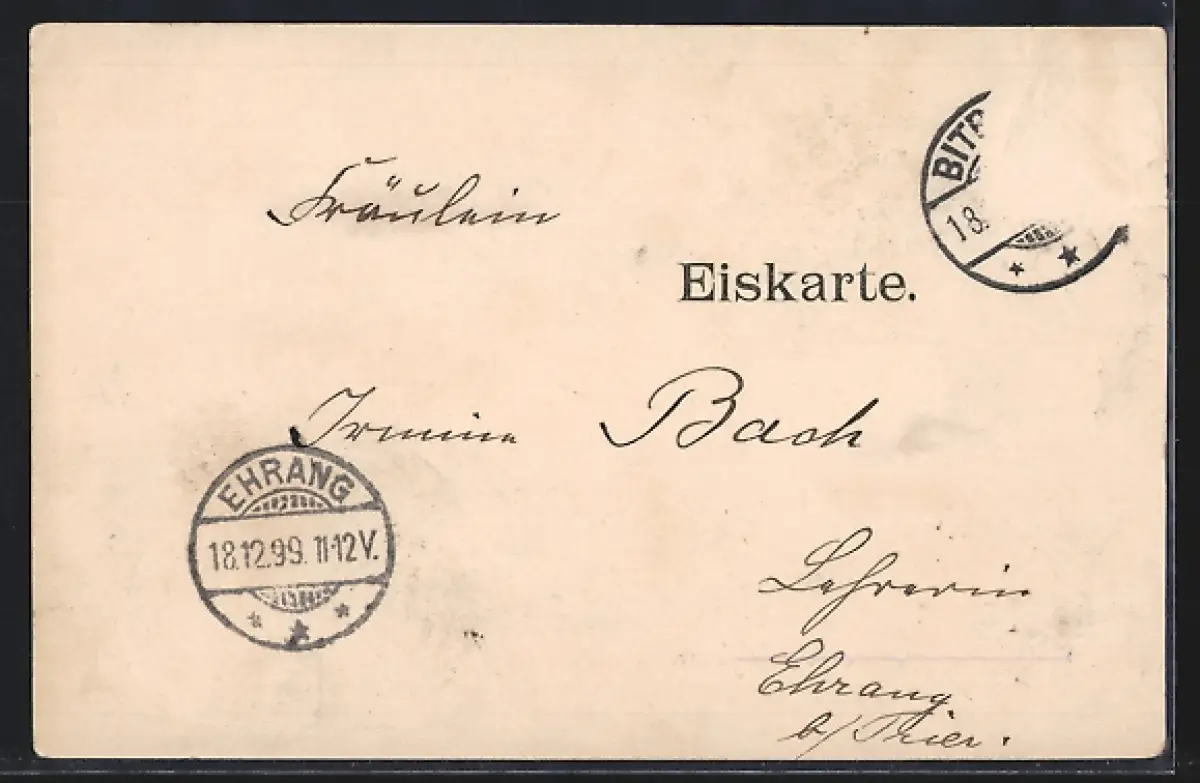 BIT
18.
Fräulein
Eiskarte.
Irmine Bach
EHRANG
18.12.99. 11-12V.
Lehrerin
Ehrang
b/Trier.